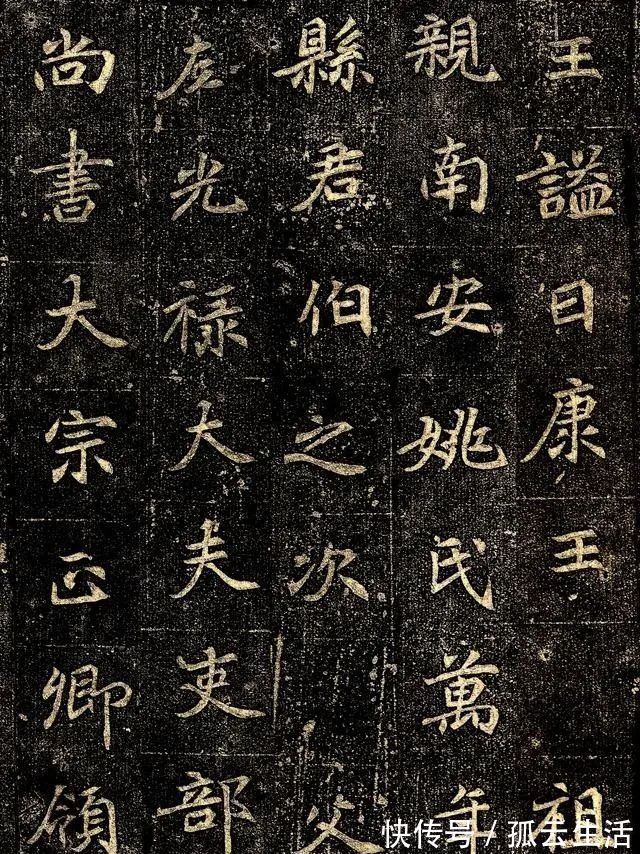 王謚曰康王 祖
親南安姚氏萬年
縣君伯之次 父
左光禄大夫吏部
尚書大宗正卿領
快传号 / 孤云生活